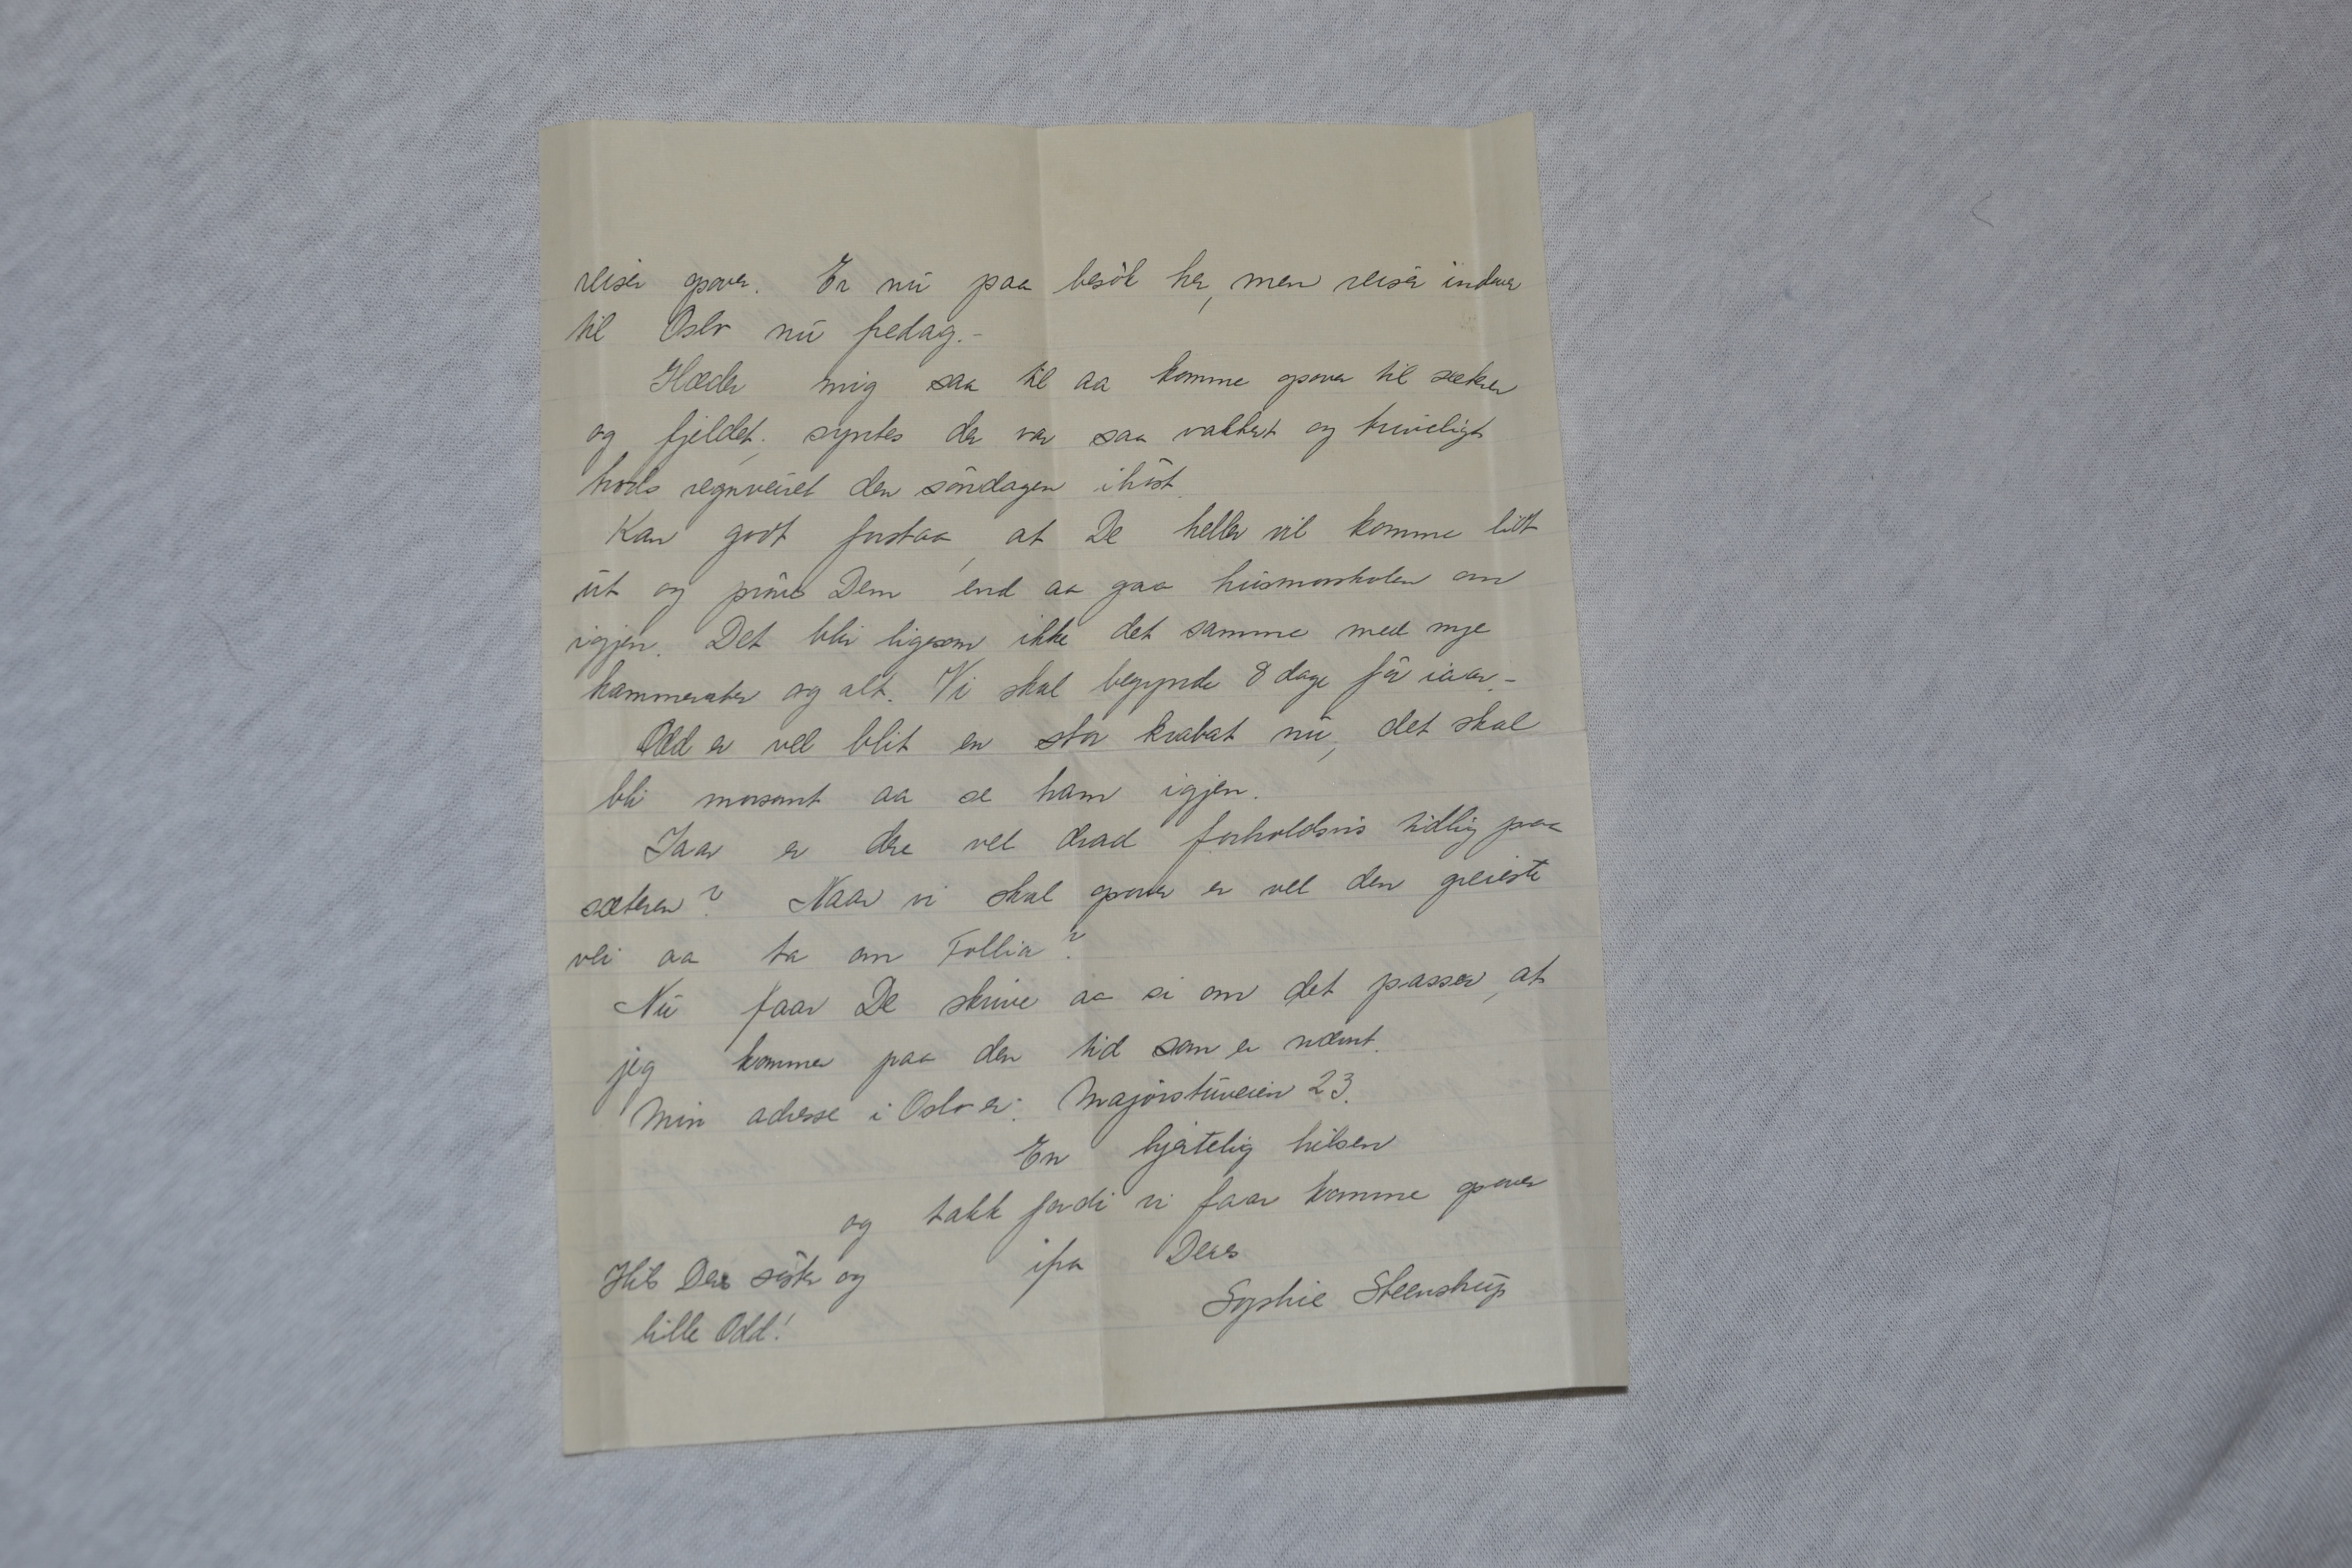 reiser opover. Er nu paa besök her, men reiser indover
til Oslo nu fredag.-
Glæder mig saa til aa komme opover til sæteren
og fjeldet, syntes der var saa vakkert og triveligt
trods regnveiret den söndagen ihöst.
Kan godt forstaa, at De heller vil komme litt
ut og pröve Dem end aa gaa husmorskolen om
igjen. Det blir ligesom ikke det samme med nye
kammerater og alt. Vi skal begynde 8 dage för iaar.-
Odd er vel blit en stor krabat nu, det skal
bli morsomt aa se ham igjen.
Iaar er dere vel drad forholdsvis tidlig paa
sæteren? Naar vi skal opover er vel den greieste
vei aa ta om Follia?
Nu faar De skrive aa si om det passer, at
jeg kommer paa den tid som er nævnt.
Min adresse i Oslo er: Majorstuveien 23.
En hjertelig hilsen
og takk fordi vi faar komme opover
ifra Deres
Sophie Steenstrup
Hils Deres söster og
lille Odd!